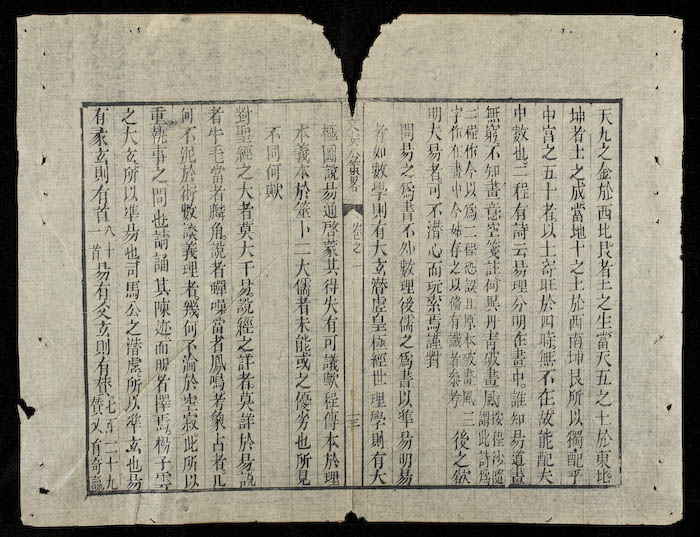 天九之金於西北艮者土之生當天五之土於東北
坤者土之成當地十之土於西南坤艮所以獨配乎
中宮之五十者以土寄旺於四時無不在故能配天
中數也二程有詩云易理分明在畫中誰知易道盡
無窮不知畫意空箋註何異丹青欲畫風按程沙隨謂此詩爲
二程作今以爲二程恐誤且原本 畫風三
字作在畫中今姑存之以俟有識者參考後之欲
明大易者可不潛心而玩索焉謹對
問易之爲書不外數理後儒之爲書以準易明易
者如數學則有大玄潛虛皇極經世理學則有太
極圖說易通啓蒙其得失有可議歟程傳本於理
本義本於筮卜二大儒者未能或之優劣也所見
不同何歟
對聖經之大者莫大于易說經之詳者莫詳於易說
者牛毛當者麟角說者蟬噪當者鳳鳴考象占者几
何不泥於術數談義理者幾何不淪於空寂此所以
重執事之問也請誦其陳迹而明者擇焉楊子雲
之大玄所以準易也司馬公之潛虛所以準玄也易
有象玄則有首八十一首易有爻玄則有贊七百二十九贊又有奇贏
卷之一